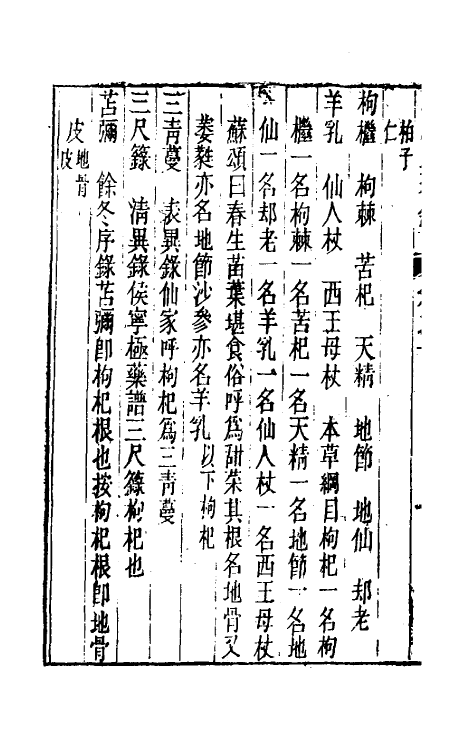 柏子
仁
枸檵　枸棘　苦杞　天精　地節　地仙　却老
羊乳　仙人杖　西王母杖　本草綱目枸杞一名枸
檵一名枸棘一名苦杞一名天精一名地節一名地
仙一名却老一名羊乳一名仙人杖一名西王母杖
蘇頌曰春生苗葉堪食俗呼爲甜菜其根名地骨又
萎蕤亦名地節沙參亦名羊乳以下枸杞
三青蔓　表異錄仙家呼枸杞爲三青蔓
三尺籙　清異錄侯寧極藥譜三尺籙枸杞也
苦彌　餘冬序錄苦彌卽枸杞根也按枸杞根卽地骨
皮地骨
皮